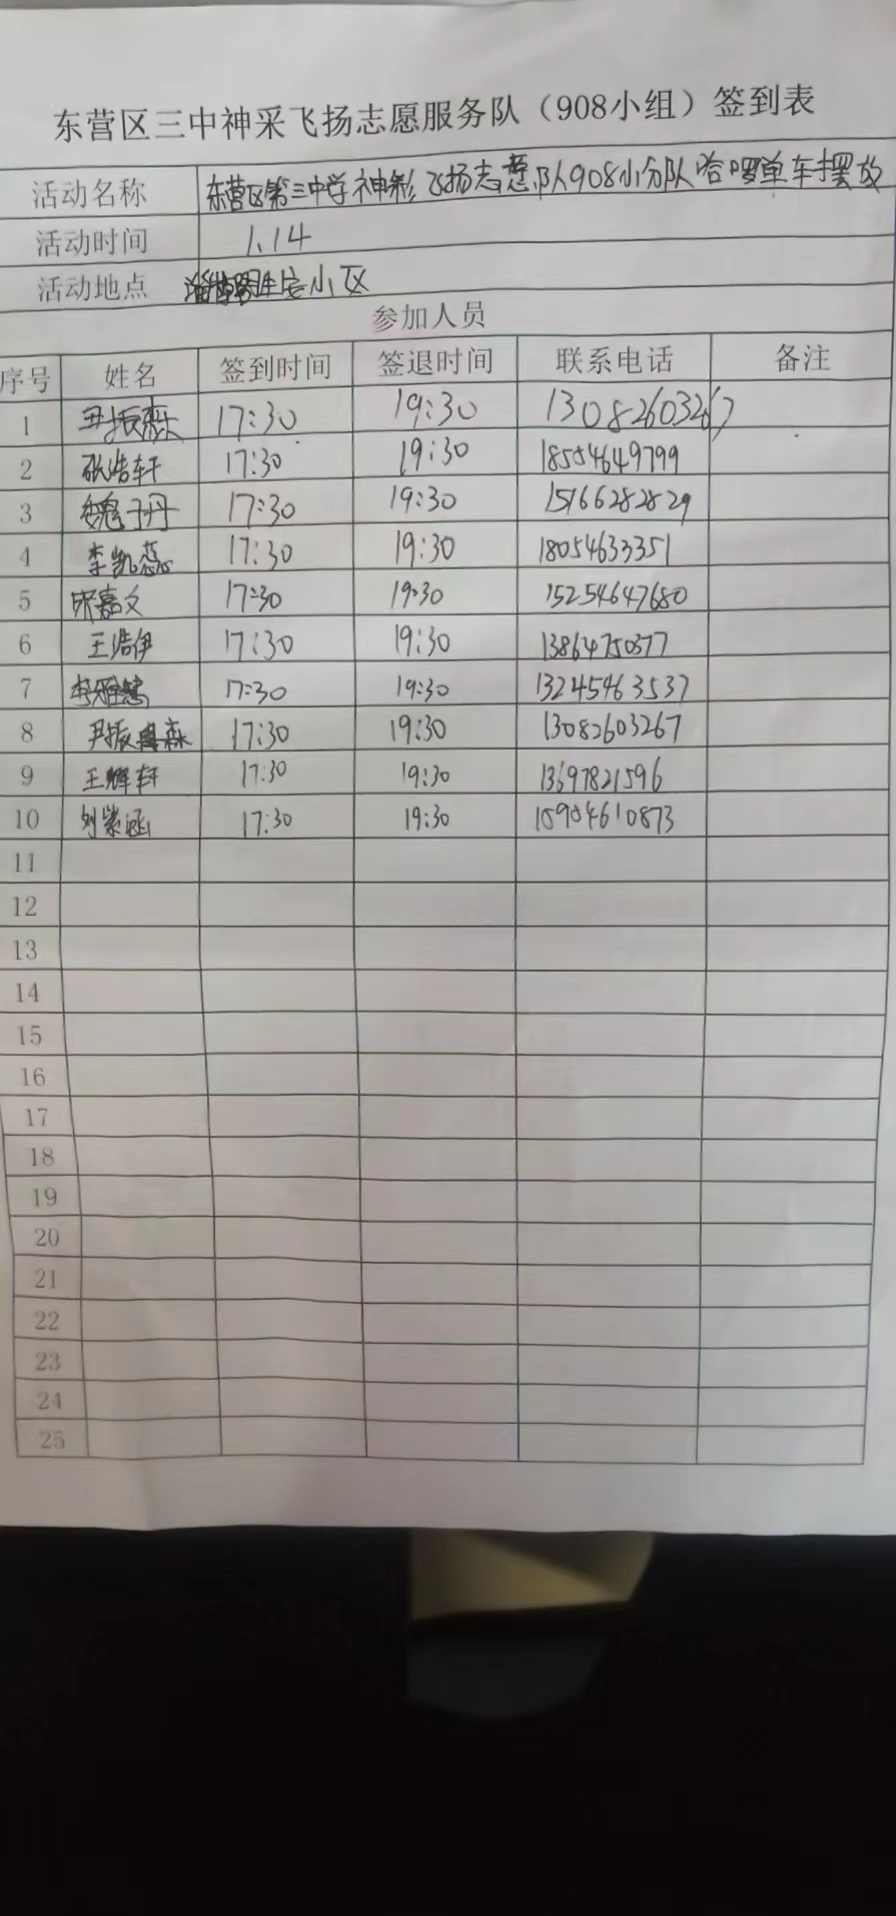 东营区三中神采飞扬志愿服务队（908小组）签到表
活动名称 东营区第三中学神彩飞扬志愿队908小分队哈啰单车摆放
活动时间 1.14
活动地点 小区
参加人员
序号 姓名 签到时间 签退时间 联系电话 备注
1 尹振森 17:30 19:30 13082603267
2 张浩轩 17:30 19:30 18554649799
3 魏子丹 17:30 19:30 15166282829
4 李凯蕊 17:30 19:30 18054633351
5 嘉文 17:30 19:30 15254647680
6 王浩伊 17:30 19:30 13864750377
7 17:30 19:30 13245463537
8 尹振森 17:30 19:30 13082603267
9 王辉轩 17:30 19:30 13697821596
10 刘紫涵 17:30 19:30 15954610873
11
12
13
14
15
16
17
18
19
20
21
22
23
24
25